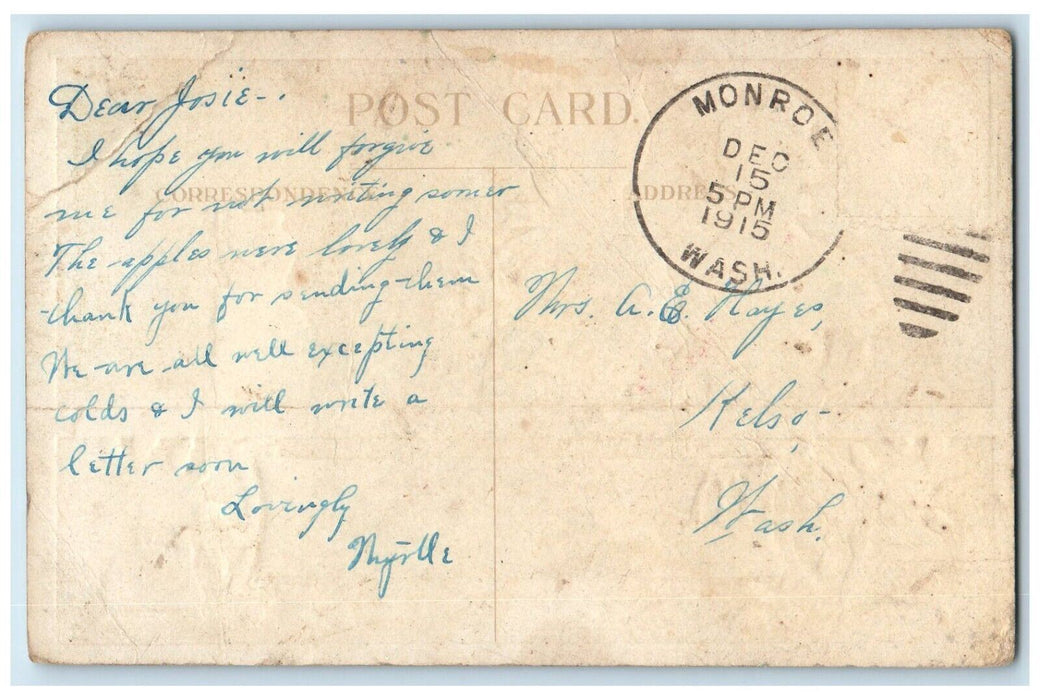 POST CARD.
CORRESPONDENCE
ADDRESS
Dear Josie-.
I hope you will forgive
me for not writing sooner
The apples were lovely & I
thank you for sending them
We are all well excepting
colds & I will write a
letter soon
Lovingly
Myrtle
MONROE
DEC
15
5 PM
1915
WASH.
Mrs. A.E. Hayes,
Kelso-
Wash.